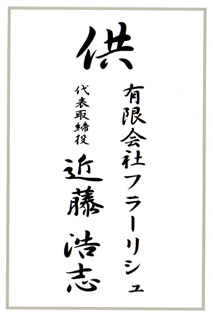 供
有限会社フラーリシュ
代表取締役 近藤浩志